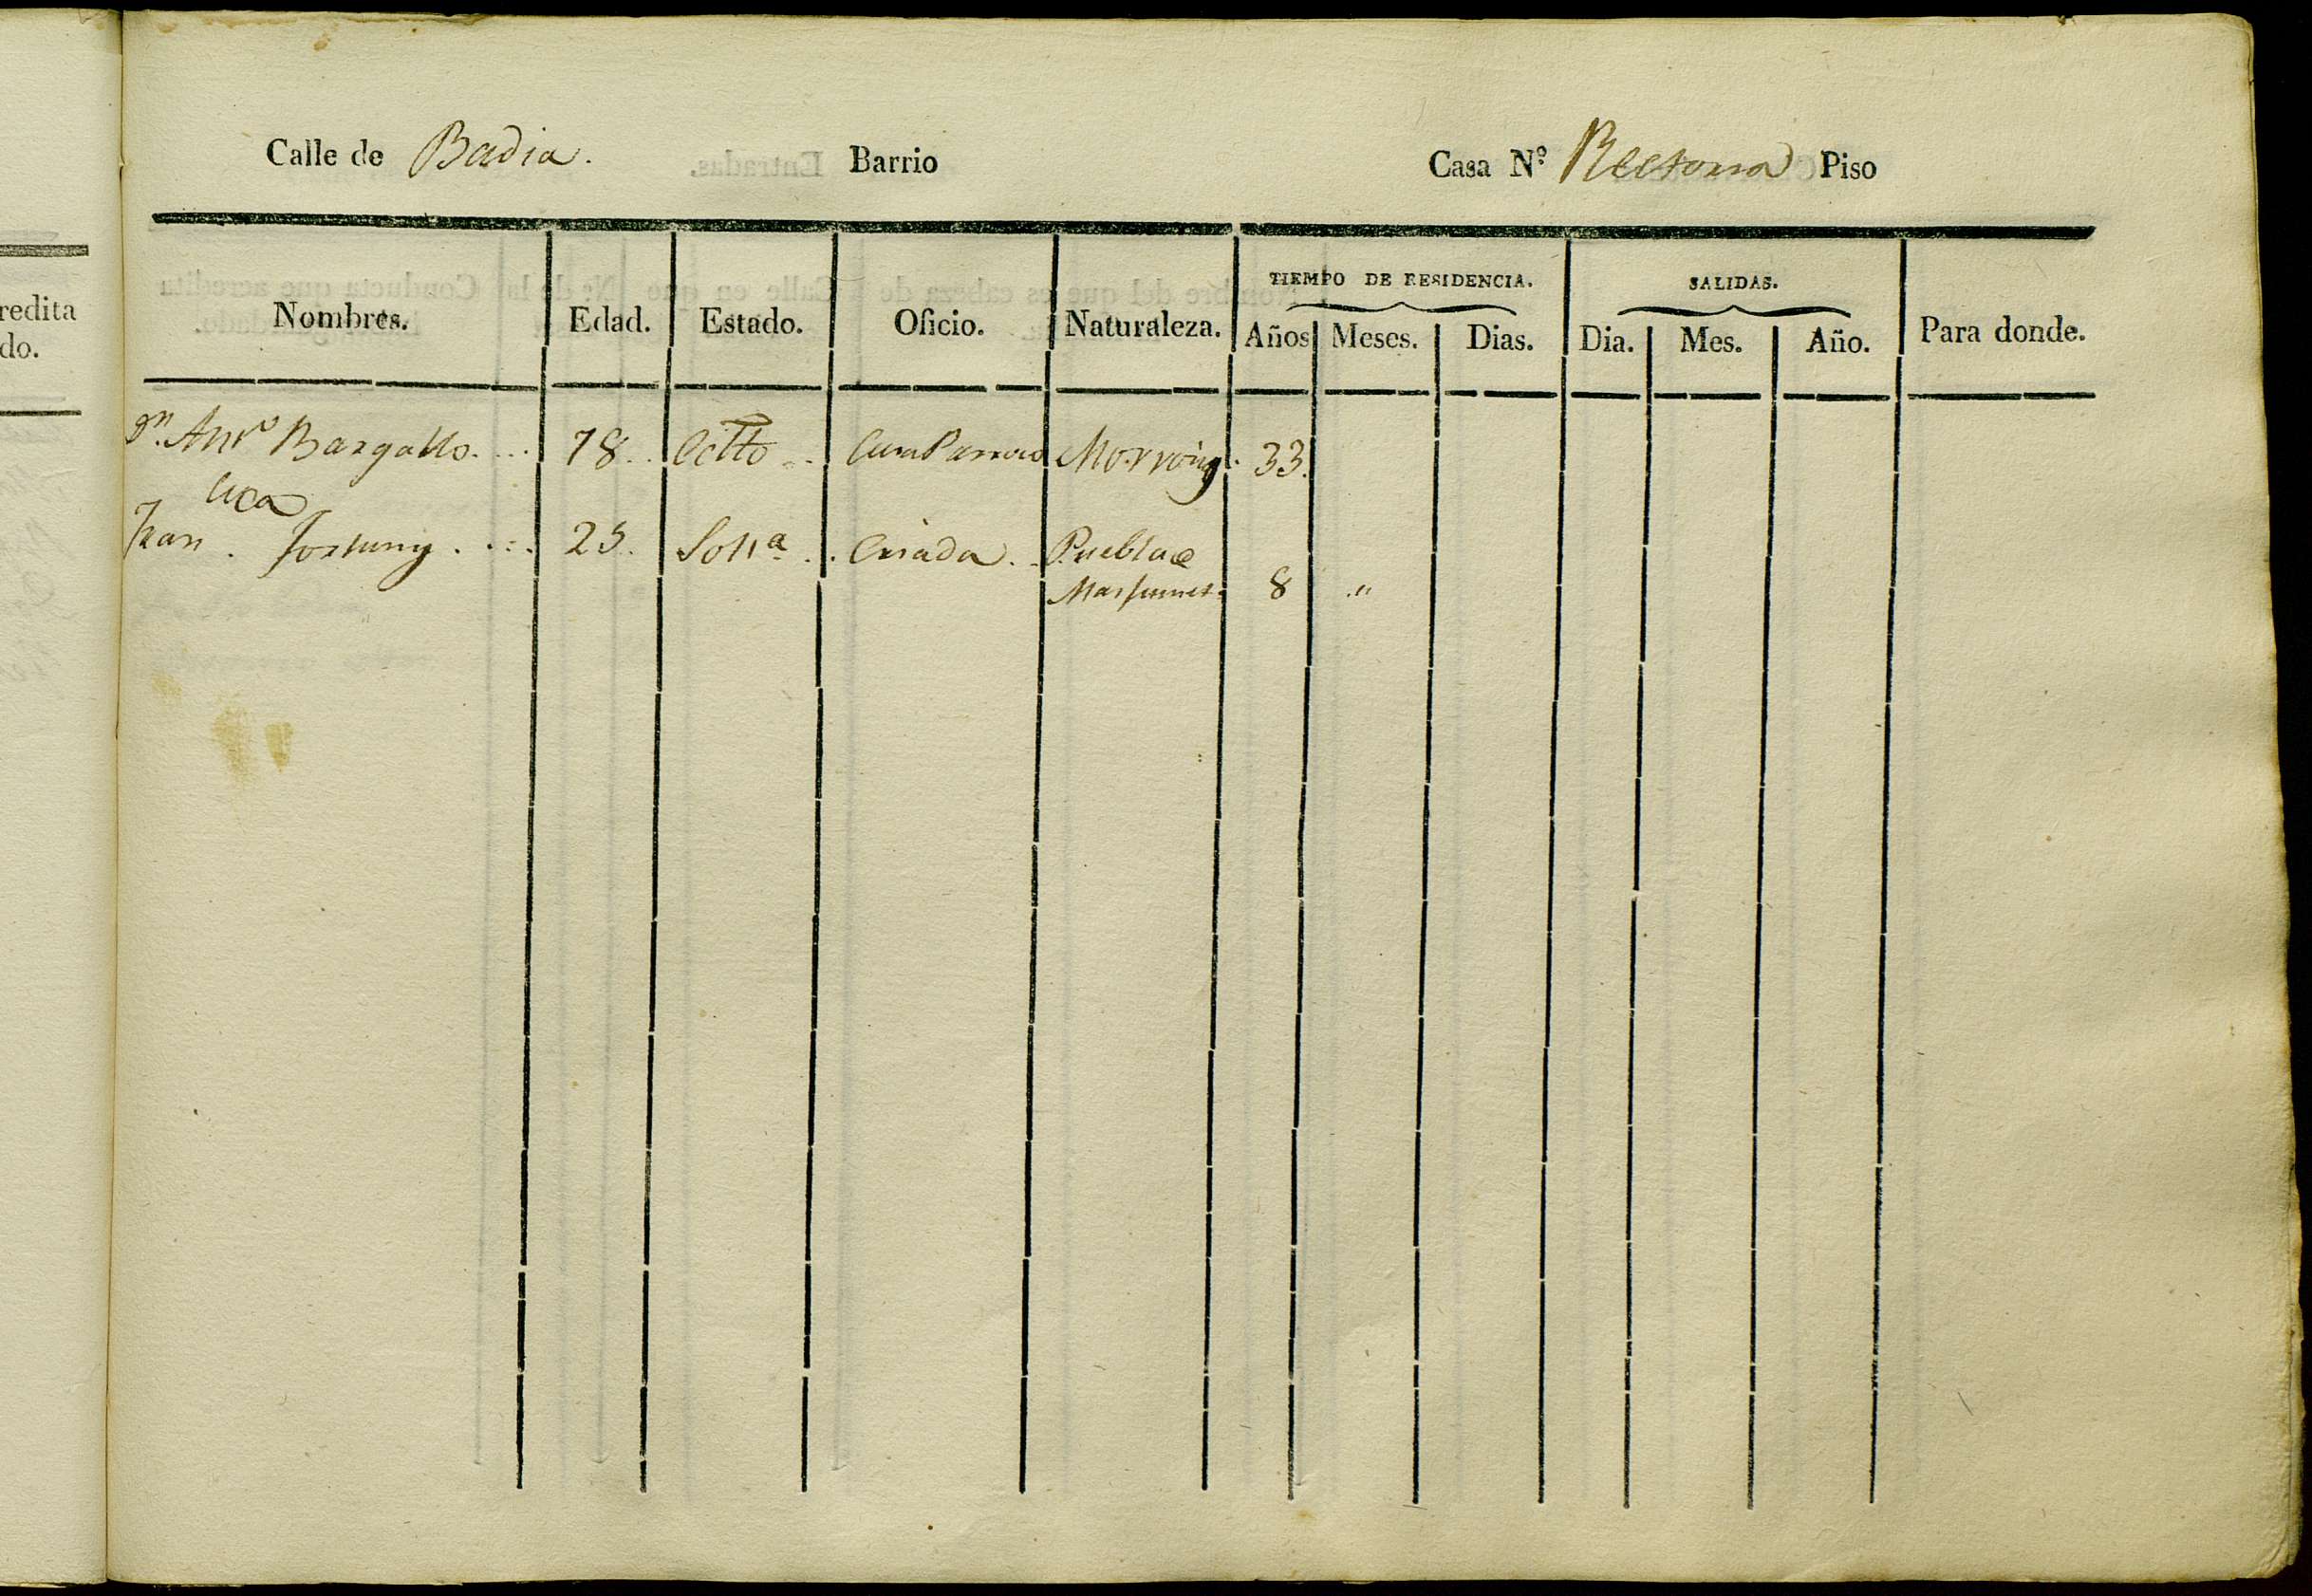 Calle de Badia. Barrio Casa Nº Rectoria Piso
TIEMPO DE RESIDENCIA. SALIDAS.
redita
do.
Nombres. Edad. Estado. Oficio. Naturaleza. Años Meses. Dias. Dia. Mes. Año. Para donde.
Dn. Anto Bargallo. 78. Cura Parroco 33.
Fran
ca
Fortuny. 25. Solta. Criada. Puebla de
Mafumet. 8 "